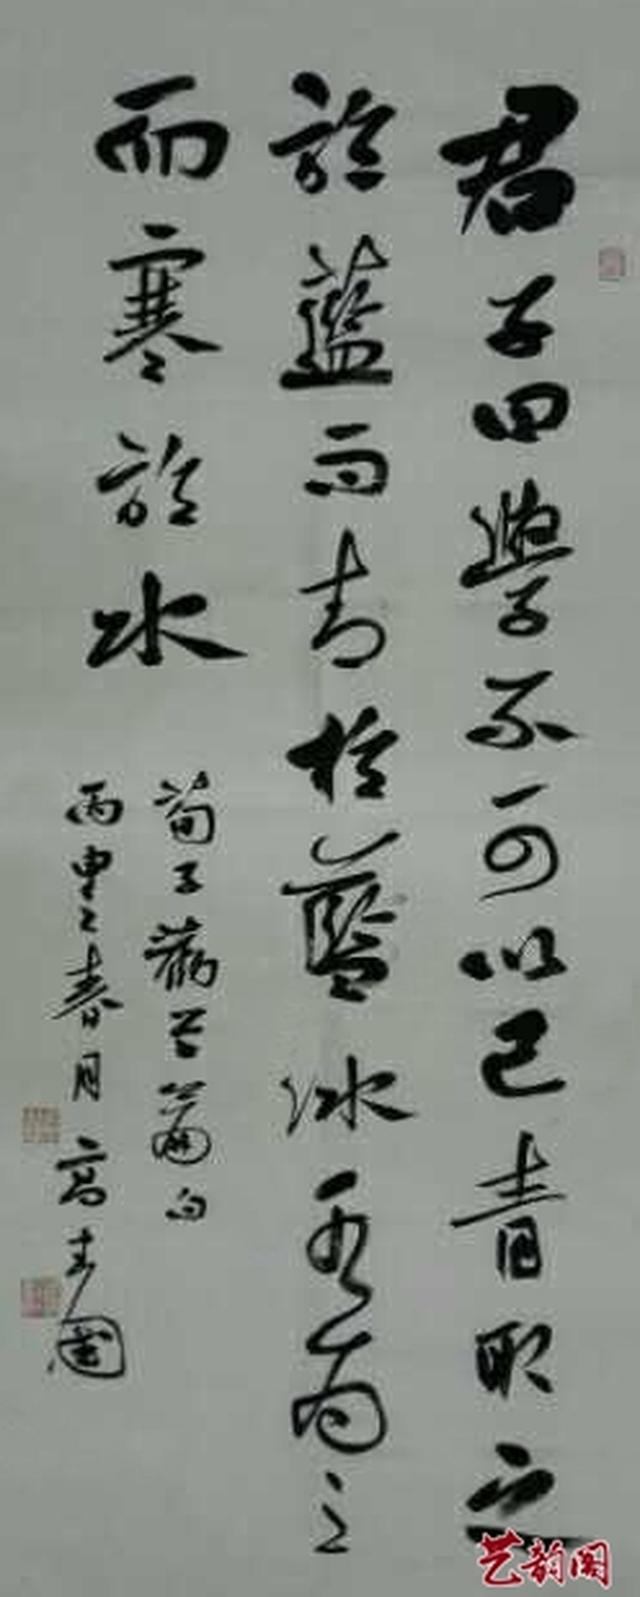 君子曰學不可以已青取之
於藍而青於藍冰水為之
而寒於水
荀子勸學篇句
丙申之春月高志國
艺韵阁